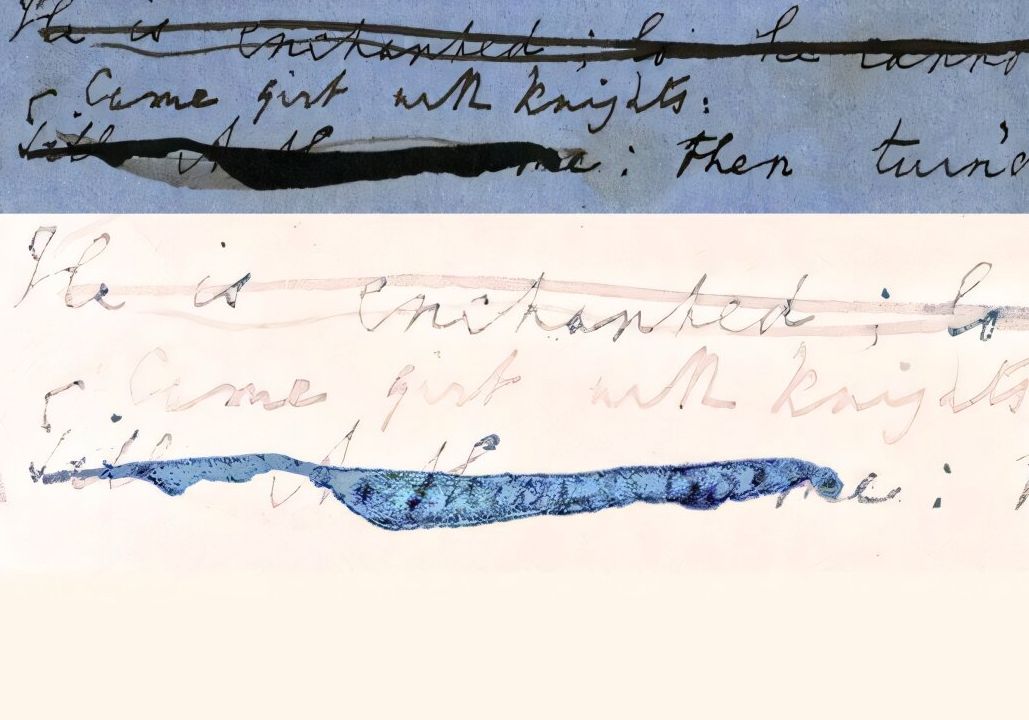 He is enchanted ; lo he canno
Came girt with knights :
: then turn'd
He is enchanted ; lo
Came girt with knights
: